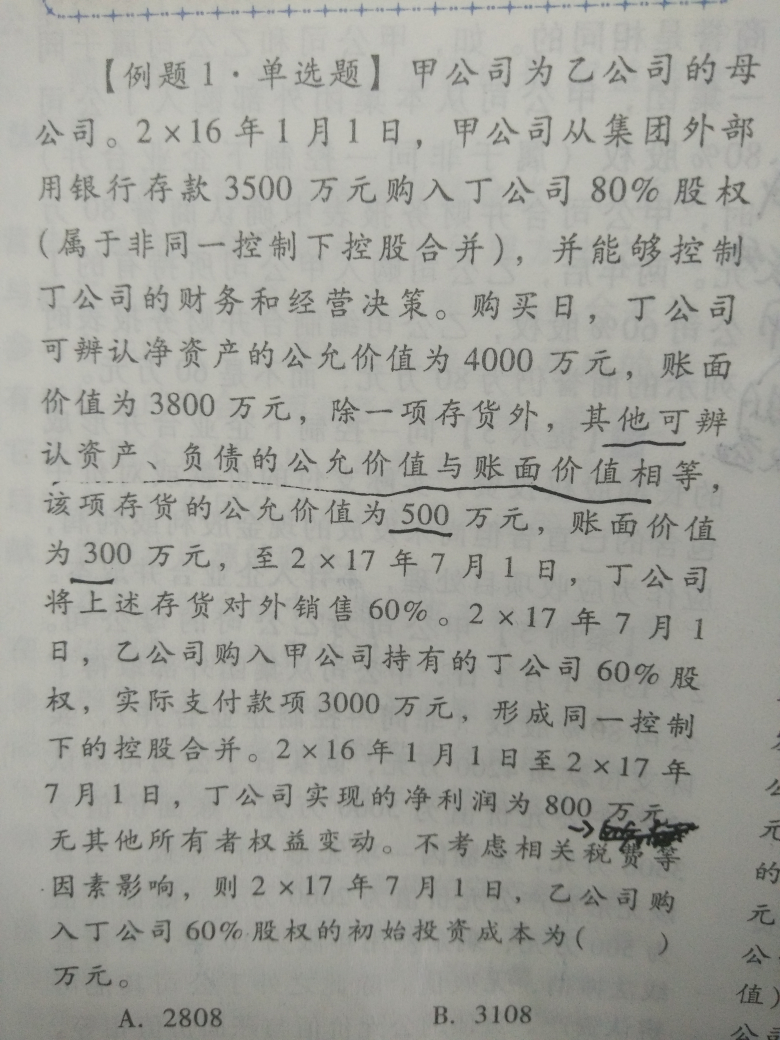 【例题1·单选题】甲公司为乙公司的母
公司。2×16年1月1日，甲公司从集团外部
用银行存款3500万元购入丁公司80%股权
(属于非同一控制下控股合并)，并能够控制
丁公司的财务和经营决策。购买日，丁公司
可辨认净资产的公允价值为4000万元，账面
价值为3800万元，除一项存货外，其他可辨
认资产、负债的公允价值与账面价值相等，
该项存货的公允价值为500万元，账面价值
为300万元，至2×17年7月1日，丁公司
将上述存货对外销售60%。2×17年7月1
日，乙公司购入甲公司持有的丁公司60%股
权，实际支付款项3000万元，形成同一控制
下的控股合并。2×16年1月1日至2×17年
7月1日，丁公司实现的净利润为800万元，
无其他所有者权益变动。不考虑相关税费等
因素影响，则2×17年7月1日，乙公司购
入丁公司60%股权的初始投资成本为(　　)
万元。
A. 2808　　B. 3108
公
元
的
元
公
值)